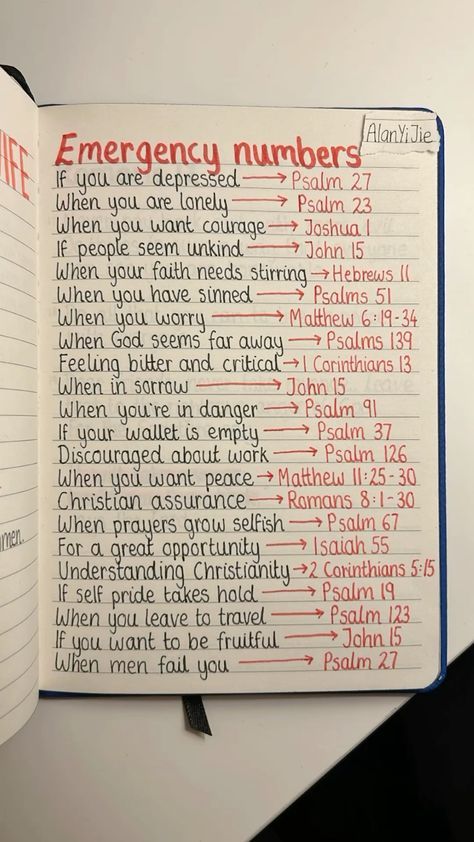 IFE
men.
AlanYiJie
Emergency numbers
If you are depressed → Psalm 27
When you are lonely → Psalm 23
When you want courage → Joshua 1
If people seem unkind → John 15
When your faith needs stirring → Hebrews 11
When you have sinned → Psalms 51
When you worry → Matthew 6:19-34
When God seems far away → Psalms 139
Feeling bitter and critical → 1 Corinthians 13
When in sorrow → John 15
When you're in danger → Psalm 91
If your wallet is empty → Psalm 37
Discouraged about work → Psalm 126
When you want peace → Matthew 11:25-30
Christian assurance → Romans 8:1-30
When prayers grow selfish → Psalm 67
For a great opportunity → Isaiah 55
Understanding Christianity → 2 Corinthians 5:15
If self pride takes hold → Psalm 19
When you leave to travel → Psalm 123
If you want to be fruitful → John 15
When men fail you → Psalm 27